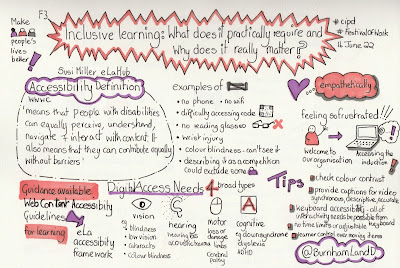 F3
Make
people's
lives
better!
Inclusive learning: What does it practically require and
Why does it really matter?
#cipd
#FestivalOfWork
June 22
Susi Miller eLaHub
Accessibility Definition
'means that people with disabilities
can equally perceive, understand,
navigate + interact with content. It
also means that they can contribute equally
without barriers'
examples of
• no phone • no wifi
• difficulty accessing code
• no reading glasses
• wrist injury
• colour blindness - can't see it
• describing it as a competition
could exclude some
empathetically
feeling so frustrated!!
welcome to
our organisation
Accessing the
induction
Guidance available:
Web Content Accessibility
Guidelines
for learning
eLa
accessibility
framework
Digital Access Needs 4 broad types
vision
eg blindness
• low vision
• cataracts
• colour blindness
hearing
hearing loss
motor
loss or
damage
limbs
cerebral
palsy
A
cognitive
eg down syndrome
dyslexia
ADHD
Tips
• check colour contrast
• provide captions for video
synchronous, descriptive, accurate
• keyboard accessibility - all of
interactivity needs be possible from
• no time limits or adjustable
learner control over moving items
@BurnhamLandD